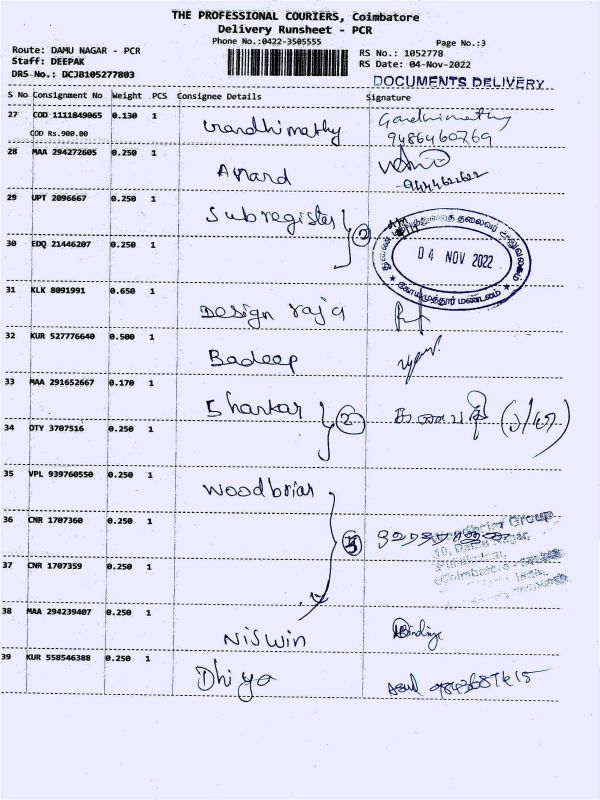 THE PROFESSIONAL COURIERS, Coimbatore
Delivery Runsheet - PCR
Phone No.:0422-3505555
Page No.:3
Route: DAMU NAGAR - PCR
RS No.: 1052778
Staff: DEEPAK
RS Date: 04-Nov-2022
DRS No.: DCJB105277803
DOCUMENTS DELIVERY
S No Consignment No Weight PCS Consignee Details Signature
27 COD 1111849065 0.130 1 Gandhimathy Gandhimathy
COD Rs.900.00 9486460769
28 MAA 294272605 0.250 1 Anand
29 UPT 2096667 0.250 1 Subregister 2
30 EDQ 21446207 0.250 1
04 NOV 2022
கோயமுத்தூர் மண்டலம்
31 KLK 8091991 0.650 1 Design raja
32 KUR 527776640 0.500 1 Badeep
33 MAA 291652667 0.170 1 Shankar 2
34 OTY 3707516 0.250 1
35 VPL 939760550 0.250 1 Woodbriar
36 CNR 1707360 0.250 1 3
Group
37 CNR 1707359 0.250 1
38 MAA 294239407 0.250 1 Niswin
39 KUR 558546388 0.250 1 Dhiya